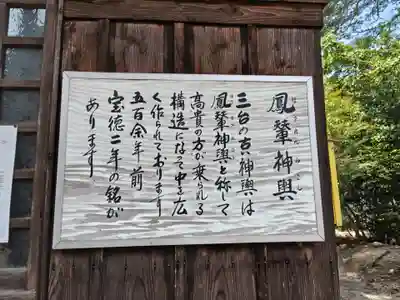 鳳輦神輿
ほうれんみこし
三台の古い神輿は
鳳輦神輿と称して
高貴の方が乗られる
構造になって中も広
く作られております
五百余年前
宝徳二年の銘が
あります